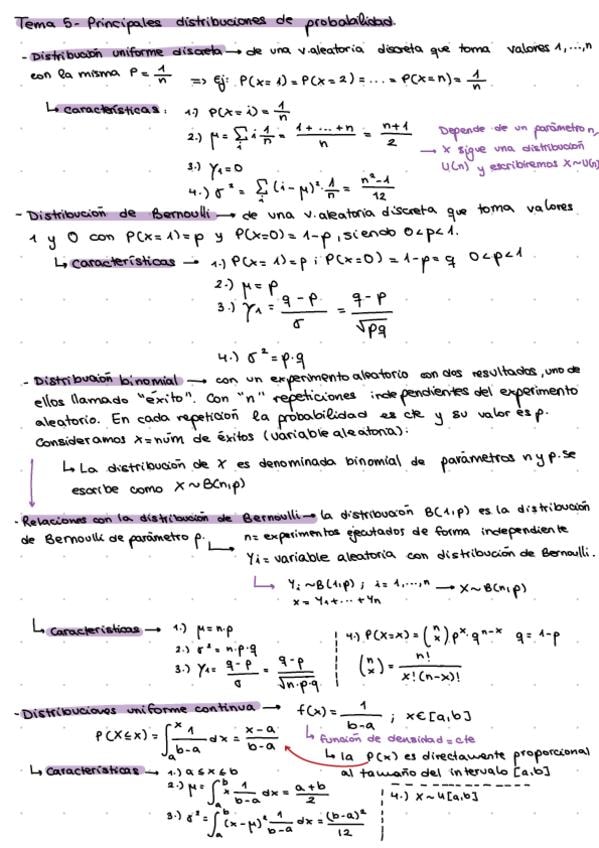 Tema 5- Principales distribuciones de probabilidad.
- Distribución uniforme discreta → de una v.aleatoria discreta que toma valores 1,...,n
con la misma P = 1/n => Ej: P(X=1) = P(X=2) = ... = P(X=n) = 1/n
↳ Características: 1.) P(X=i) = 1/n
2.) μ = Σᵢ i 1/n = (1+...+n)/n = (n+1)/2
Depende de un parámetro n,
→ X sigue una distribución
U(n) y escribiremos X~U(n)
3.) γ₁ = 0
4.) σ² = Σᵢ (i-μ)² · 1/n = (n²-1)/12
- Distribución de Bernoulli → de una v.aleatoria discreta que toma valores
1 y 0 con P(X=1)=p y P(X=0)=1-p, siendo 0<p<1.
↳ Características → 1.) P(X=1)=p ; P(X=0)=1-p=q 0<p<1
2.) μ = p
3.) γ₁ = (q-p)/σ = (q-p)/√pq
4.) σ² = p·q
- Distribución binomial → con un experimento aleatorio con dos resultados, uno de
ellos llamado "éxito". Con "n" repeticiones independientes del experimento
aleatorio. En cada repetición la probabilidad es cte y su valor es p.
Consideramos X = núm de éxitos (variable aleatoria):
↳ La distribución de X es denominada binomial de parámetros n y p. se
escribe como X~B(n,p)
- Relaciones con la distribución de Bernoulli → la distribución B(1,p) es la distribución
de Bernoulli de parámetro p. ↳ n = experimentos ejecutados de forma independiente
Yi = variable aleatoria con distribución de Bernoulli.
↳ Yi ~B(1,p) ; i = 1,...,n → X~B(n,p)
x = Y1+...+Yn
↳ Características → 1.) μ = n·p
2.) σ² = n·p·q
3.) γ₁ = (q-p)/σ = (q-p)/√n·p·q
4.) P(X=x) = (n x) pˣ · qⁿ⁻ˣ q = 1-p
(n x) = n!/x!(n-x)!
- Distribuciones uniforme continua → f(x) = 1/(b-a) ; x∈[a,b]
↳ función de densidad = cte
P(X≤x) = ∫ₐˣ 1/(b-a) dx = (x-a)/(b-a)
↳ la P(x) es directamente proporcional
al tamaño del intervalo [a,b]
↳ Características → 1.) a≤x≤b
2.) μ = ∫ₐᵇ x 1/(b-a) dx = (a+b)/2
3.) σ² = ∫ₐᵇ (x-μ)² 1/(b-a) dx = (b-a)²/12
4.) X~U[a,b]